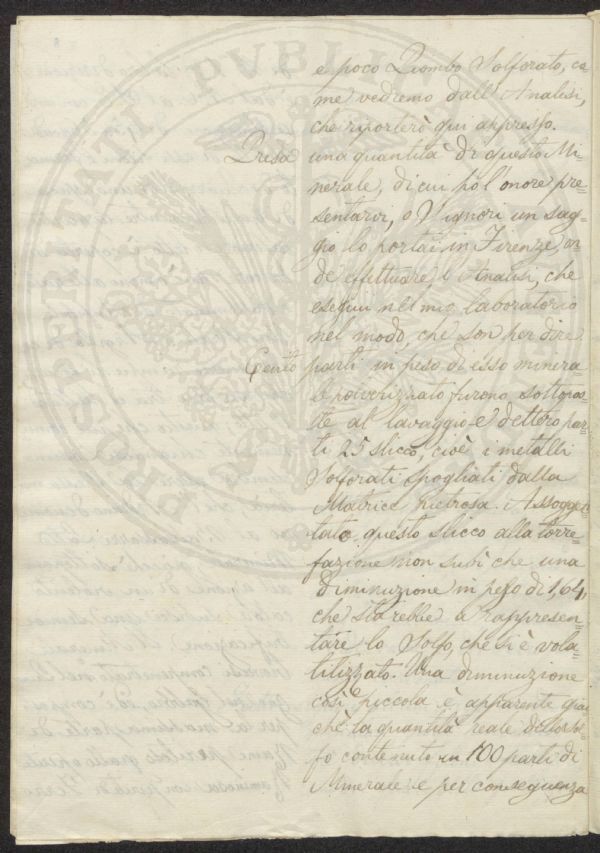 e poco Piombo Solforato, co=
me vedremo dall'Analisi,
che riporterò qui appresso.
Presa una quantità di questo Mi=
nerale, di cui ho l'onore pre=
sentarvi, o Signori un sag=
gio lo portai in Firenze, on
de effettuare l'Analisi, che
eseguii nel mio laboratorio
nel modo, che son per dire
Cento parti in peso di esso minera=
le polverizzato furono sottopos=
te al lavaggio e dettero par=
ti 25 slicco, cioè i metalli
Solforati spogliati dalla
Matrice Pietrosa. Assogget
tato questo slicco alla torre=
fazione non subì che una
diminuzione in peso di 1,64,
che starebbe a rappresen=
tare lo Solfo, che si è vola=
tilizzato. Una diminuzione
così piccola è apparente gia
chè la quantità reale di Sol
fo contenuto in 100 parti di
Minerale e per conseguenza
PROSPERITATI PVBLICAE